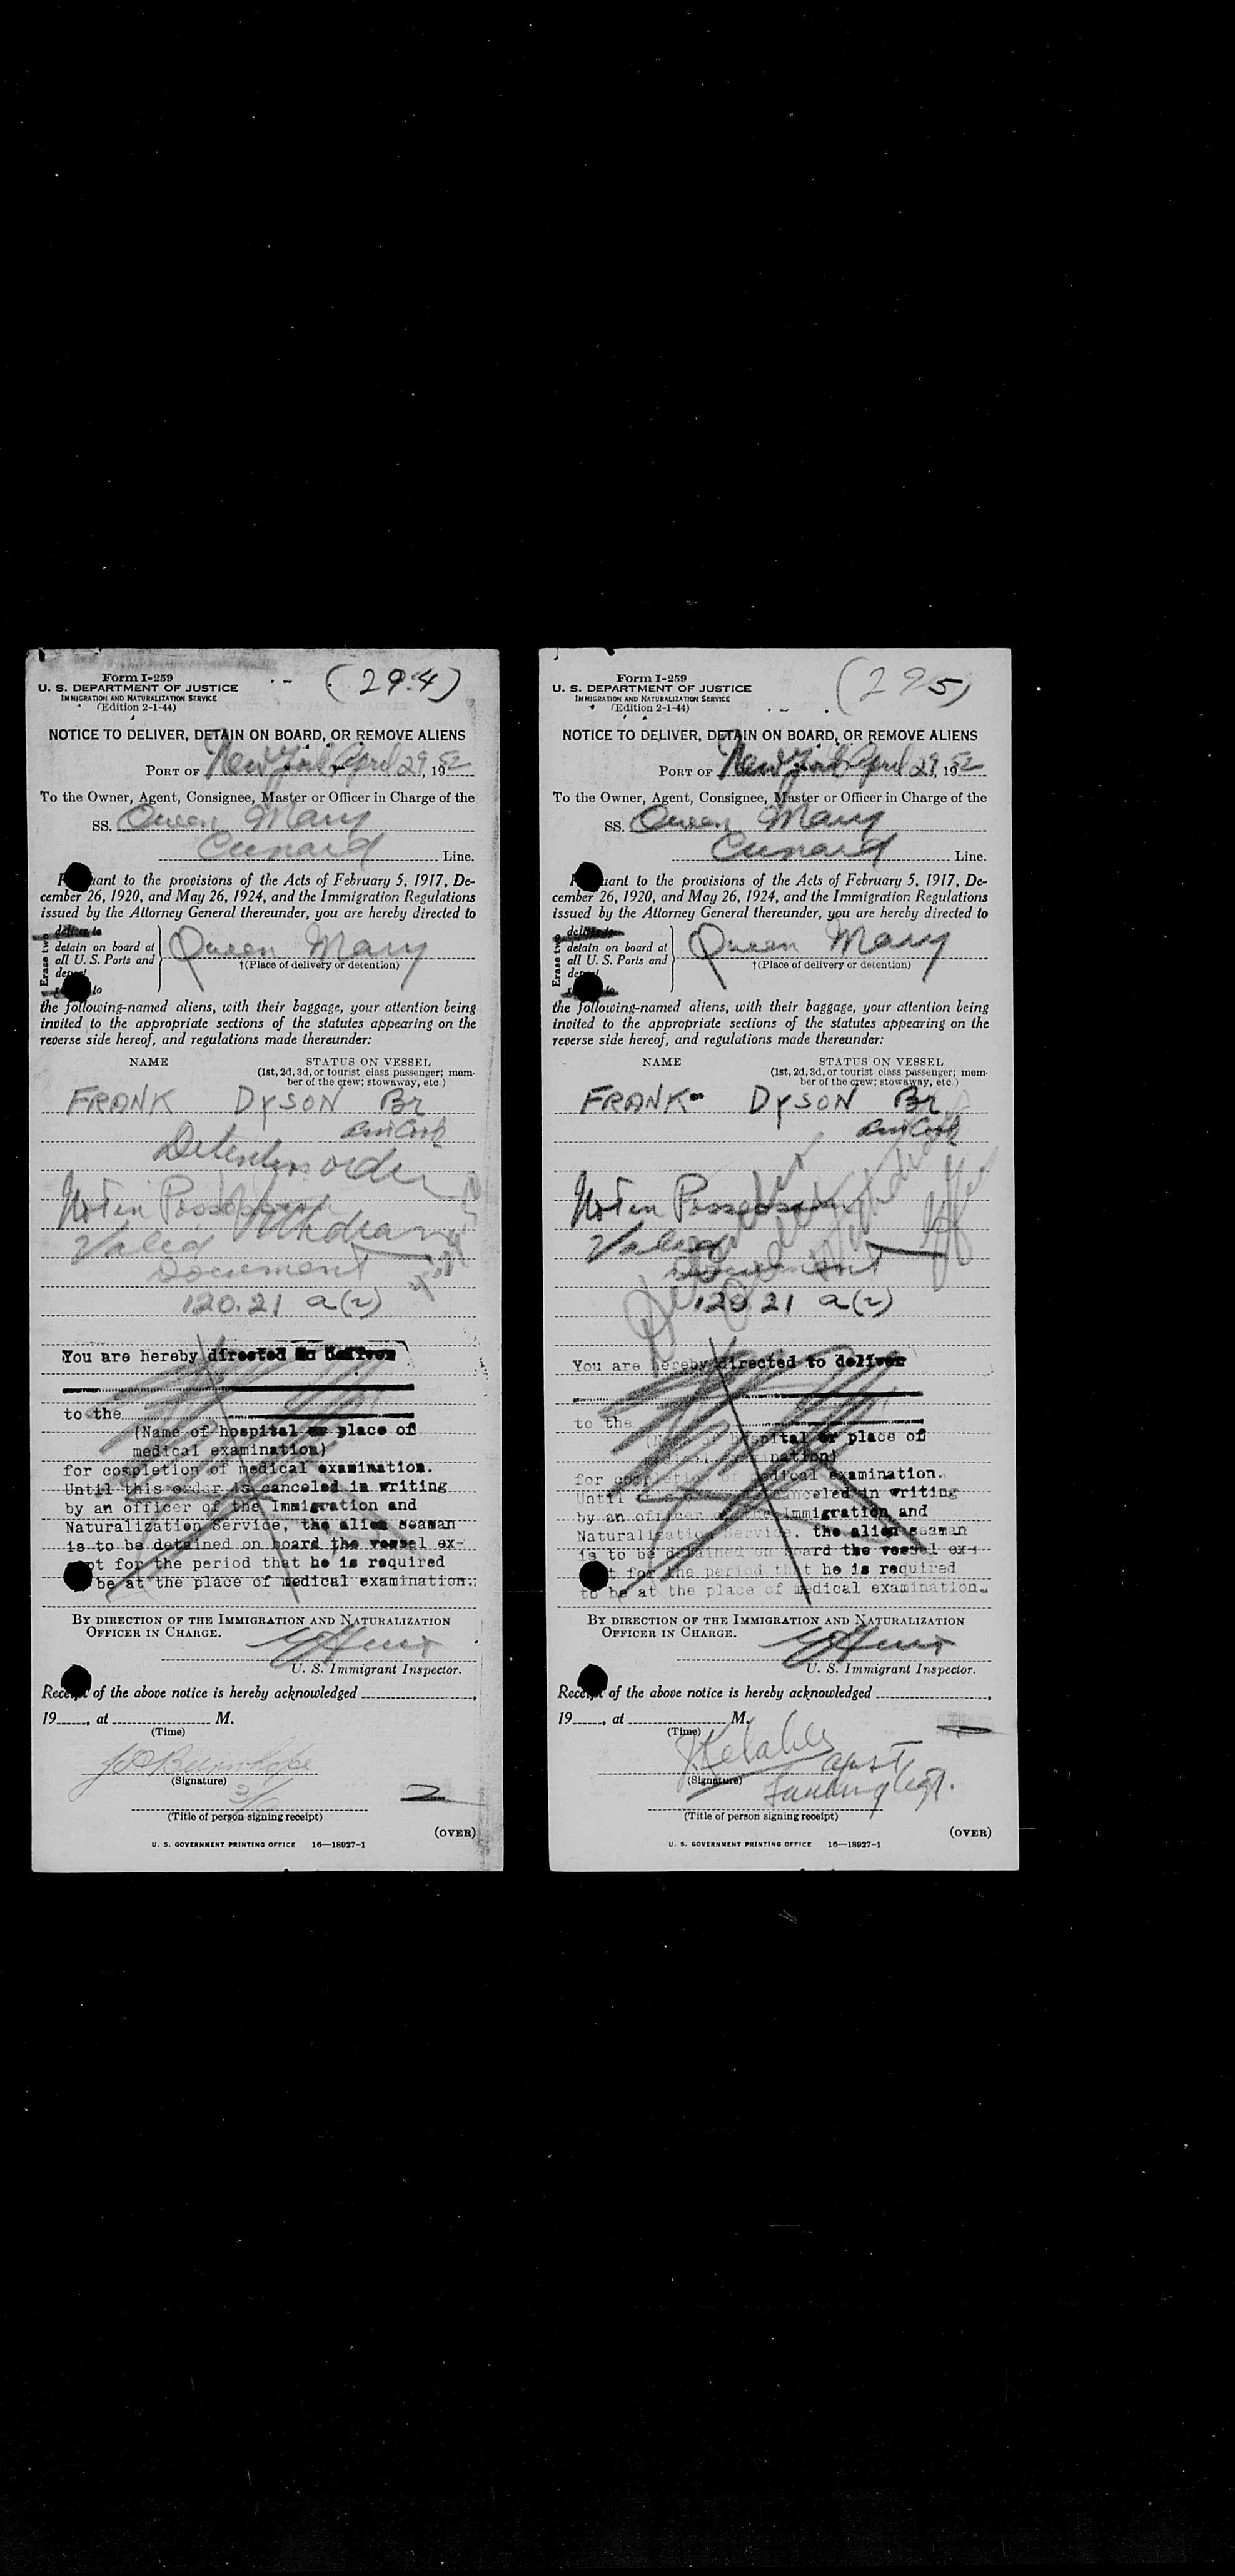 Form I-259
U. S. DEPARTMENT OF JUSTICE
IMMIGRATION AND NATURALIZATION SERVICE
(Edition 2-1-44)
(294)
NOTICE TO DELIVER, DETAIN ON BOARD, OR REMOVE ALIENS
PORT OF New York April 29, 1952
To the Owner, Agent, Consignee, Master or Officer in Charge of the
SS. Queen Mary
Cunard Line.
uant to the provisions of the Acts of February 5, 1917, De-
cember 26, 1920, and May 26, 1924, and the Immigration Regulations
issued by the Attorney General thereunder, you are hereby directed to
Erase two
deliver to
detain on board at
all U. S. Ports and
Queen Mary
†(Place of delivery or detention)
to
the following-named aliens, with their baggage, your attention being
invited to the appropriate sections of the statutes appearing on the
reverse side hereof, and regulations made thereunder:
NAME STATUS ON VESSEL
(1st, 2d, 3d, or tourist class passenger; mem-
ber of the crew; stowaway, etc.)
FRANK DYSON Br
Cook
Detention order
Not in Possession
Withdrawn
Valid
Document
120.21 a(2)
You are hereby directed to deliver
to the
(Name of hospital or place of
medical examination)
for completion of medical examination.
Until this order is canceled in writing
by an officer of the Immigration and
Naturalization Service, the alien seaman
is to be detained on board the vessel ex-
pt for the period that he is required
be at the place of medical examination.
BY DIRECTION OF THE IMMIGRATION AND NATURALIZATION
OFFICER IN CHARGE.
U. S. Immigrant Inspector.
Receipt of the above notice is hereby acknowledged
19, at M.
(Time)
(Signature)
(Title of person signing receipt)
(OVER)
U. S. GOVERNMENT PRINTING OFFICE 16—18927-1
Form I-259
U. S. DEPARTMENT OF JUSTICE
IMMIGRATION AND NATURALIZATION SERVICE
(Edition 2-1-44)
(295)
NOTICE TO DELIVER, DETAIN ON BOARD, OR REMOVE ALIENS
PORT OF New York April 29, 1952
To the Owner, Agent, Consignee, Master or Officer in Charge of the
SS. Queen Mary
Cunard Line.
uant to the provisions of the Acts of February 5, 1917, De-
cember 26, 1920, and May 26, 1924, and the Immigration Regulations
issued by the Attorney General thereunder, you are hereby directed to
Erase two
detain on board at
all U. S. Ports and
Queen Mary
†(Place of delivery or detention)
to
the following-named aliens, with their baggage, your attention being
invited to the appropriate sections of the statutes appearing on the
reverse side hereof, and regulations made thereunder:
NAME STATUS ON VESSEL
(1st, 2d, 3d, or tourist class passenger; mem-
ber of the crew; stowaway, etc.)
FRANK DYSON Br
Cook
Not in Possession
Valid
Document
120.21 a(2)
You are hereby directed to deliver
to the
hospital or place of
for completion of medical examination.
Until canceled in writing
by an officer of the Immigration and
Naturalization Service, the alien seaman
is to be detained on board the vessel ex-
t for the period that he is required
to be at the place of medical examination.
BY DIRECTION OF THE IMMIGRATION AND NATURALIZATION
OFFICER IN CHARGE.
U. S. Immigrant Inspector.
Receipt of the above notice is hereby acknowledged
19, at M.
(Time)
(Signature)
(Title of person signing receipt)
(OVER)
U. S. GOVERNMENT PRINTING OFFICE 16—18927-1